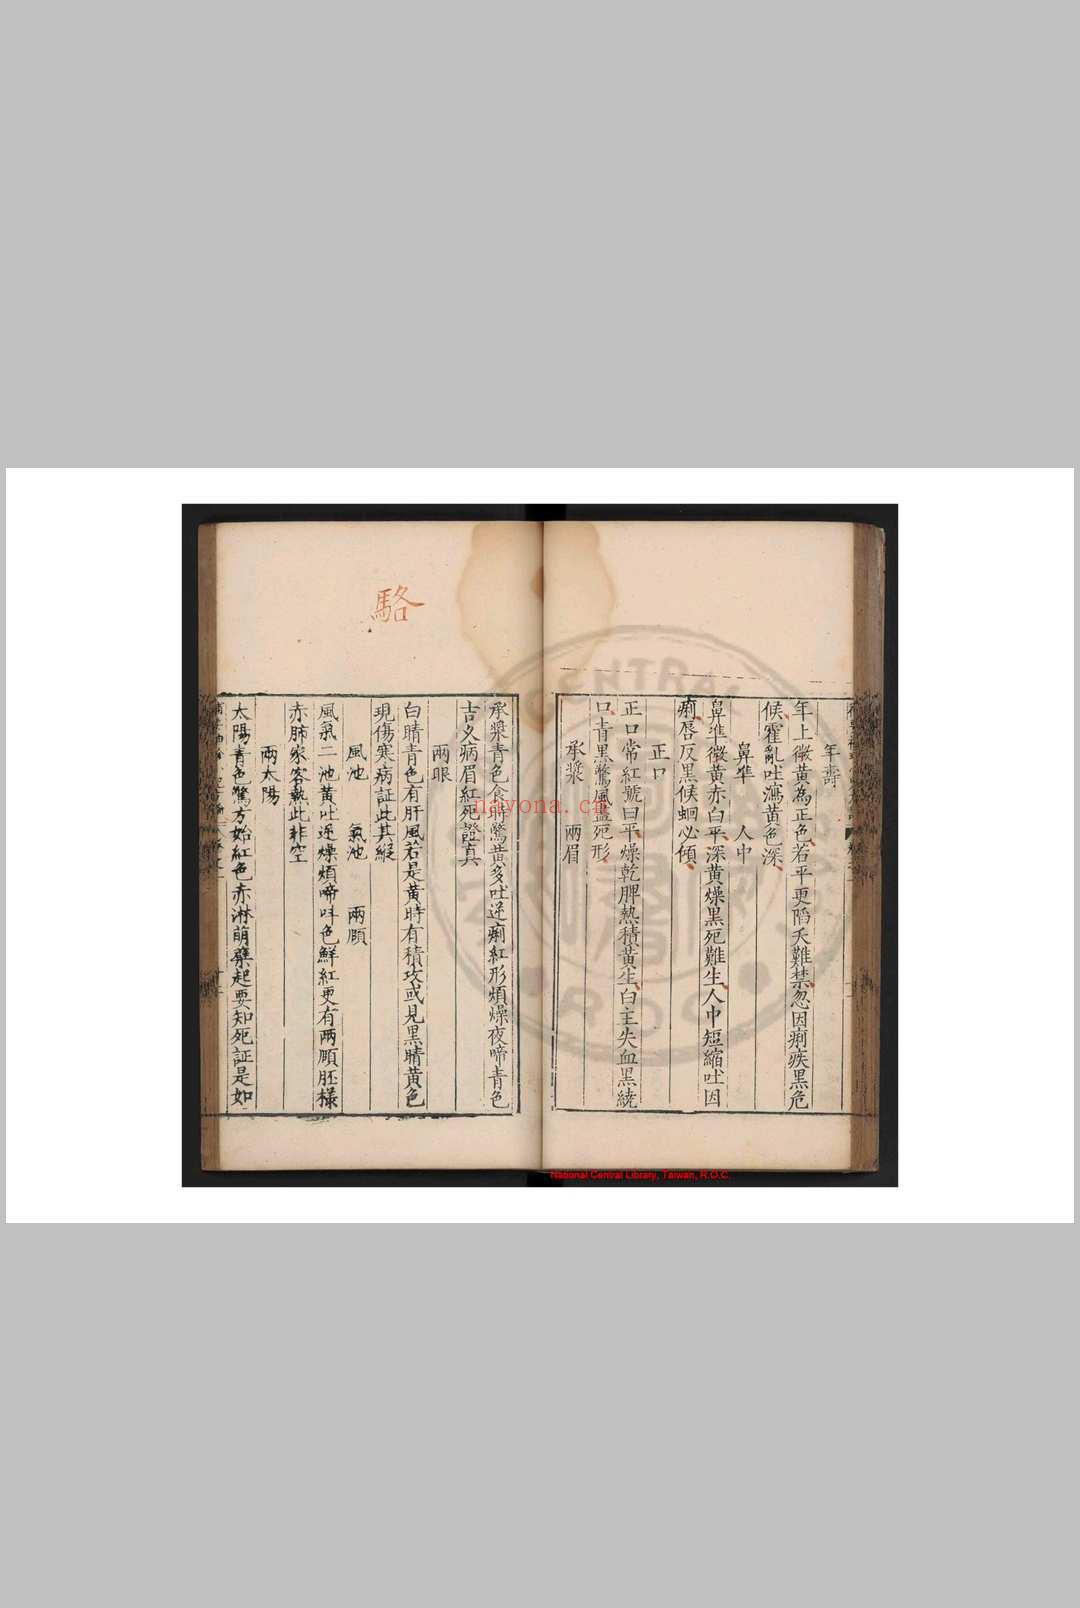 年壽
年上微黃為正色若平更陷夭難禁忽因痢疾黑危
候霍亂吐瀉黃色深
鼻準 人中
鼻準微黃赤白平深黃燥黑死難生人中短縮吐因
痢唇反黑候蛔必傾
正口
正口常紅號曰平燥乾脾熱積黃生白主失血黑繞
口青黑驚風盡死形
承漿 兩眉
駱
承漿青色食時驚黃多吐逆痢紅形煩燥夜啼青色
吉久病眉紅死證真
兩眼
白睛青色有肝風若是黃時有積攻或見黑睛黃色
現傷寒病証此其縱
風池 氣池 兩頤
風氣二池黃吐逆燥煩啼呌色鮮紅更有兩頤胚樣
赤肺家客熱此非空
兩太陽
太陽青色驚方始紅色赤淋萌孽起要知死証是如
nayona.cn
National Central Library, Taiwan, R.O.C.